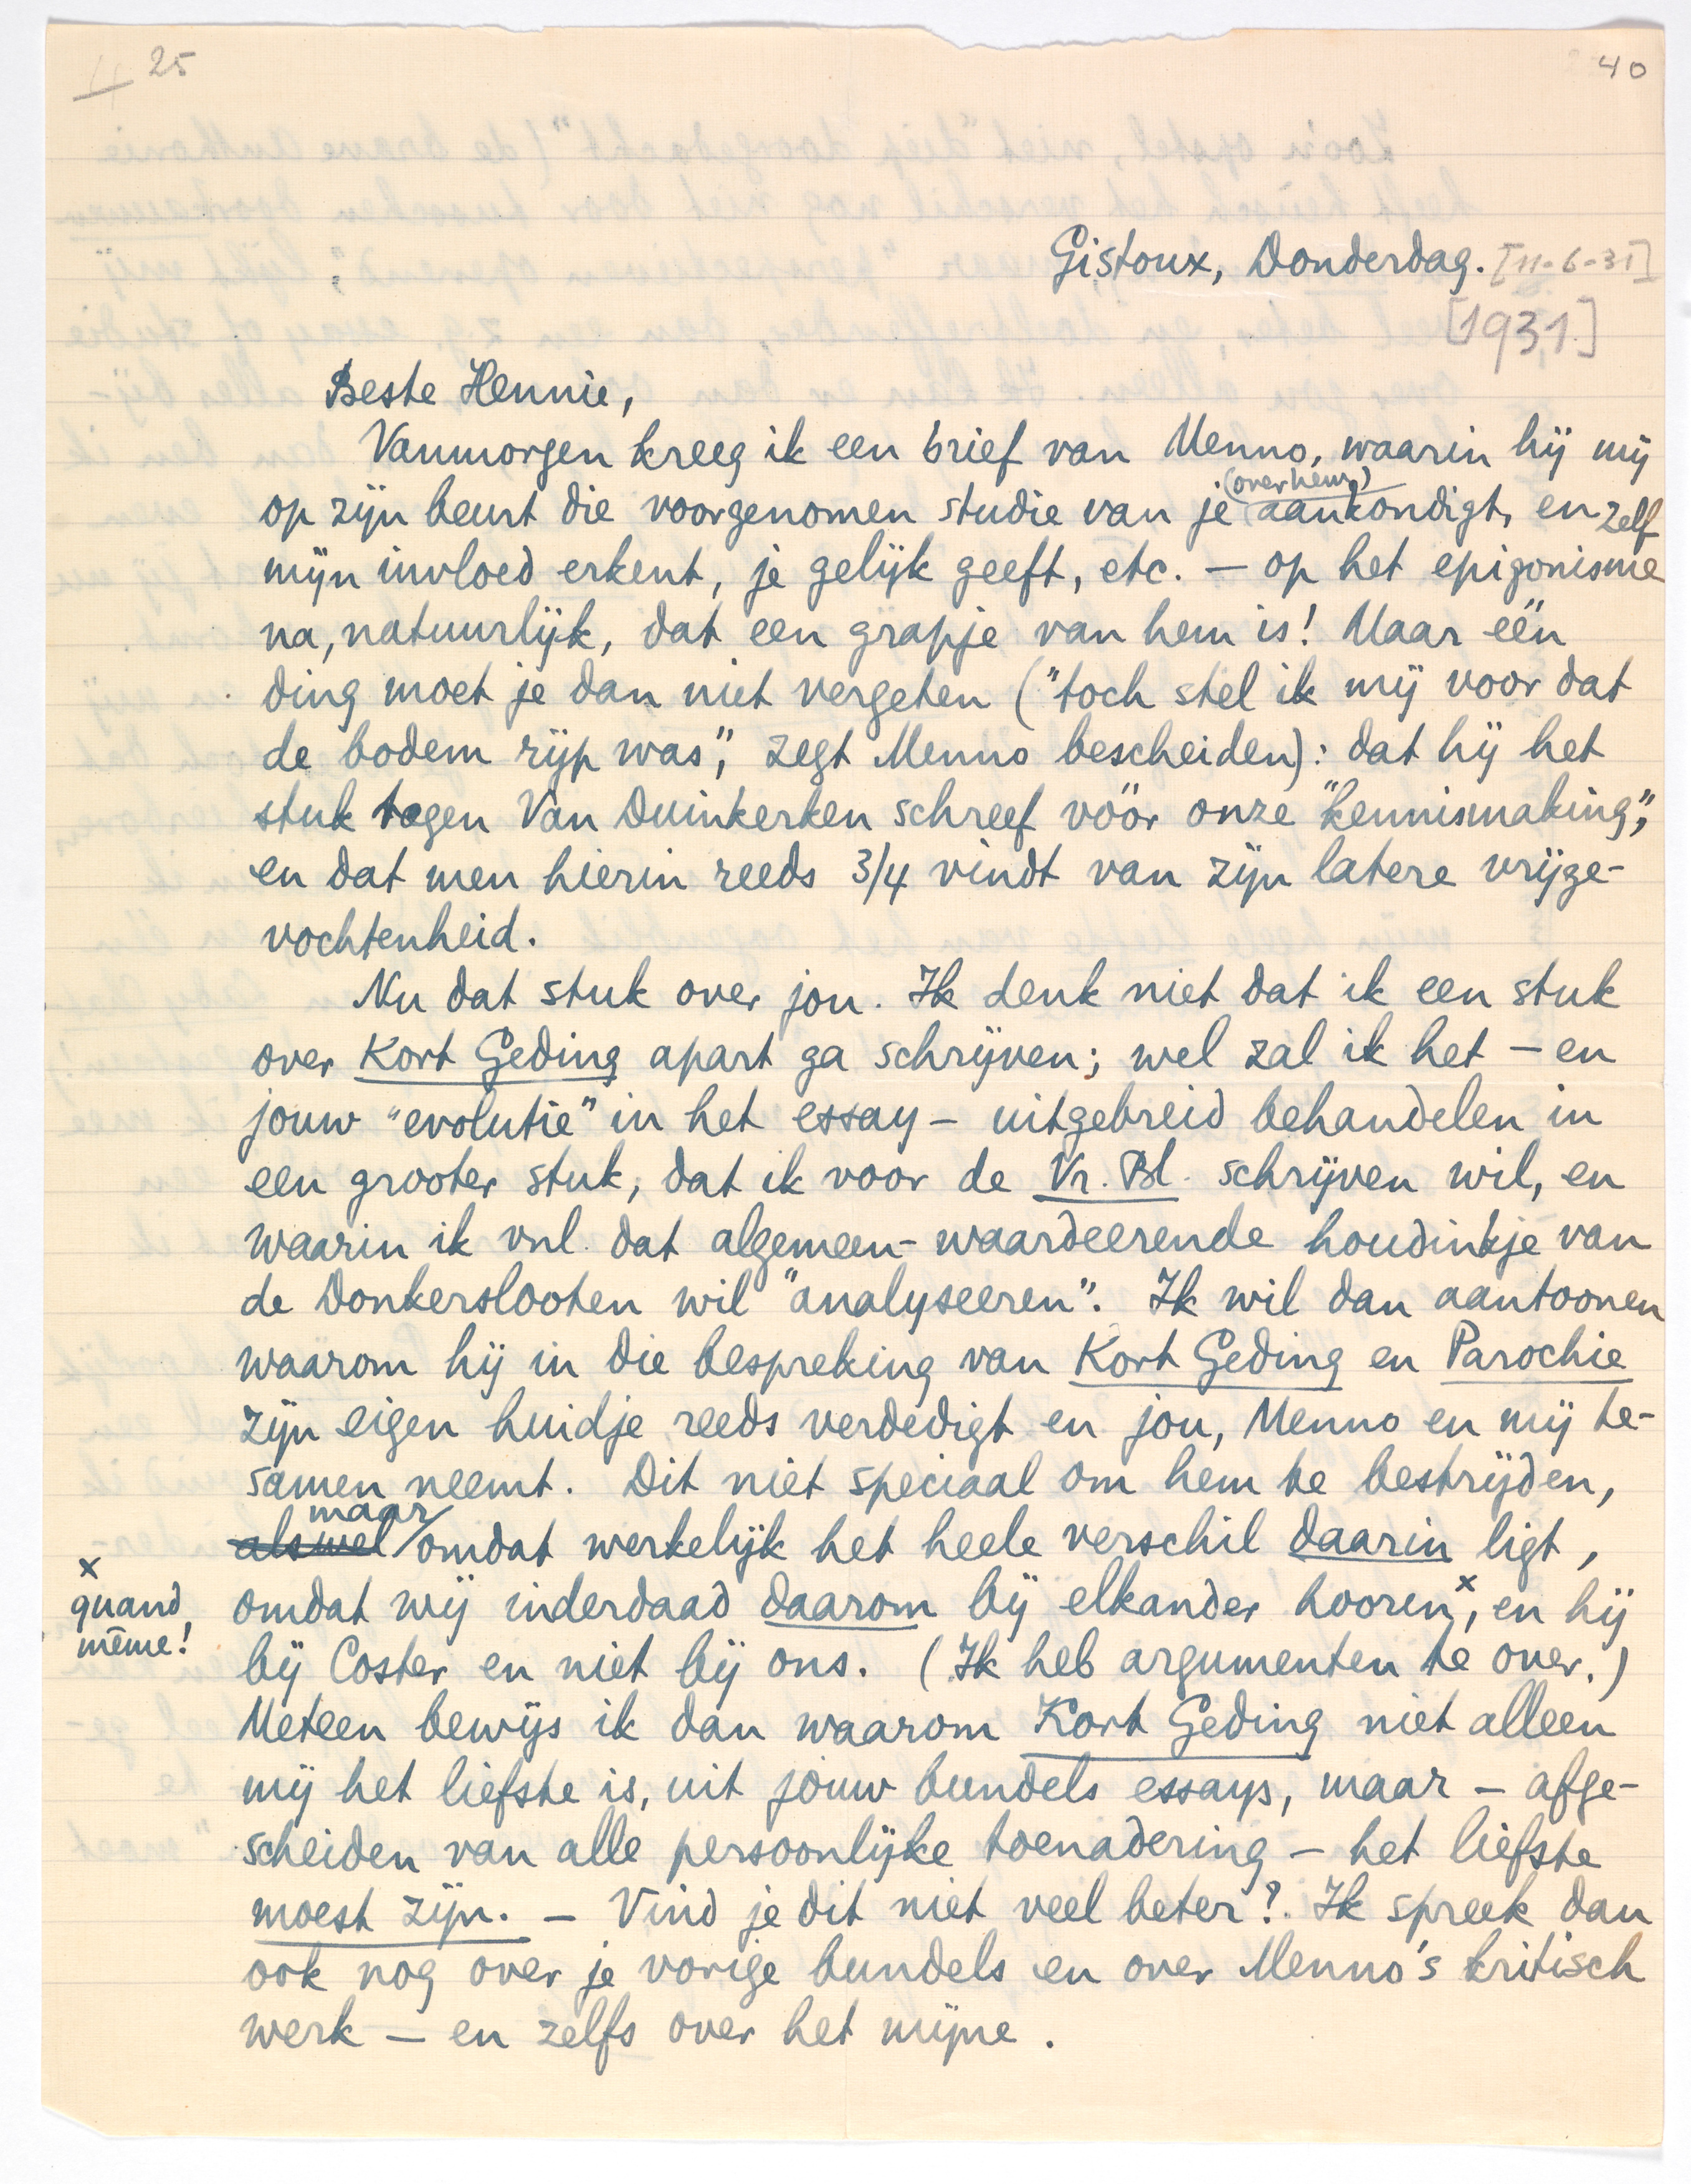 25
40
Gistoux, Donderdag. [11-6-31]
[1931]
Beste Hennie,
Vanmorgen kreeg ik een brief van Menno, waarin hij mij
op zijn beurt die voorgenomen studie van je (over hem) aankondigt, en zelf
mijn invloed erkent, je gelijk geeft, etc. — op het epigonisme
na, natuurlijk, dat een grapje van hem is! Maar één
ding moet je dan niet vergeten ("toch stel ik mij voor dat
de bodem rijp was", zegt Menno bescheiden): dat hij het
stuk tegen Van Duinkerken schreef vóór onze "kennismaking",
en dat men hierin reeds 3/4 vindt van zijn latere vrijge-
vochtenheid.
Nu dat stuk over jou. Ik denk niet dat ik een stuk
over Kort Geding apart ga schrijven; wel zal ik het — en
jouw "evolutie" in het essay — uitgebreid behandelen in
een grooter stuk, dat ik voor de Vr. Bl. schrijven wil, en
waarin ik vnl. dat algemeen-waardeerende houdinkje van
de Donkerslooten wil "analyseeren". Ik wil dan aantoonen
waarom hij in die bespreking van Kort Geding en Parochie
zijn eigen huidje reeds verdedigt en jou, Menno en mij te-
samen neemt. Dit niet speciaal om hem te bestrijden,
alswel maar omdat werkelijk het heele verschil daarin ligt,
omdat wij inderdaad daarom bij elkander hooren x, en hij
x quand même!
bij Coster en niet bij ons. (Ik heb argumenten te over.)
Meteen bewijs ik dan waarom Kort Geding niet alleen
mij het liefste is, uit jouw bundels essays, maar — afge-
scheiden van alle persoonlijke toenadering — het liefste
moest zijn. — Vind je dit niet veel beter? Ik spreek dan
ook nog over je vorige bundels en over Menno's kritisch
werk — en zelfs over het mijne.